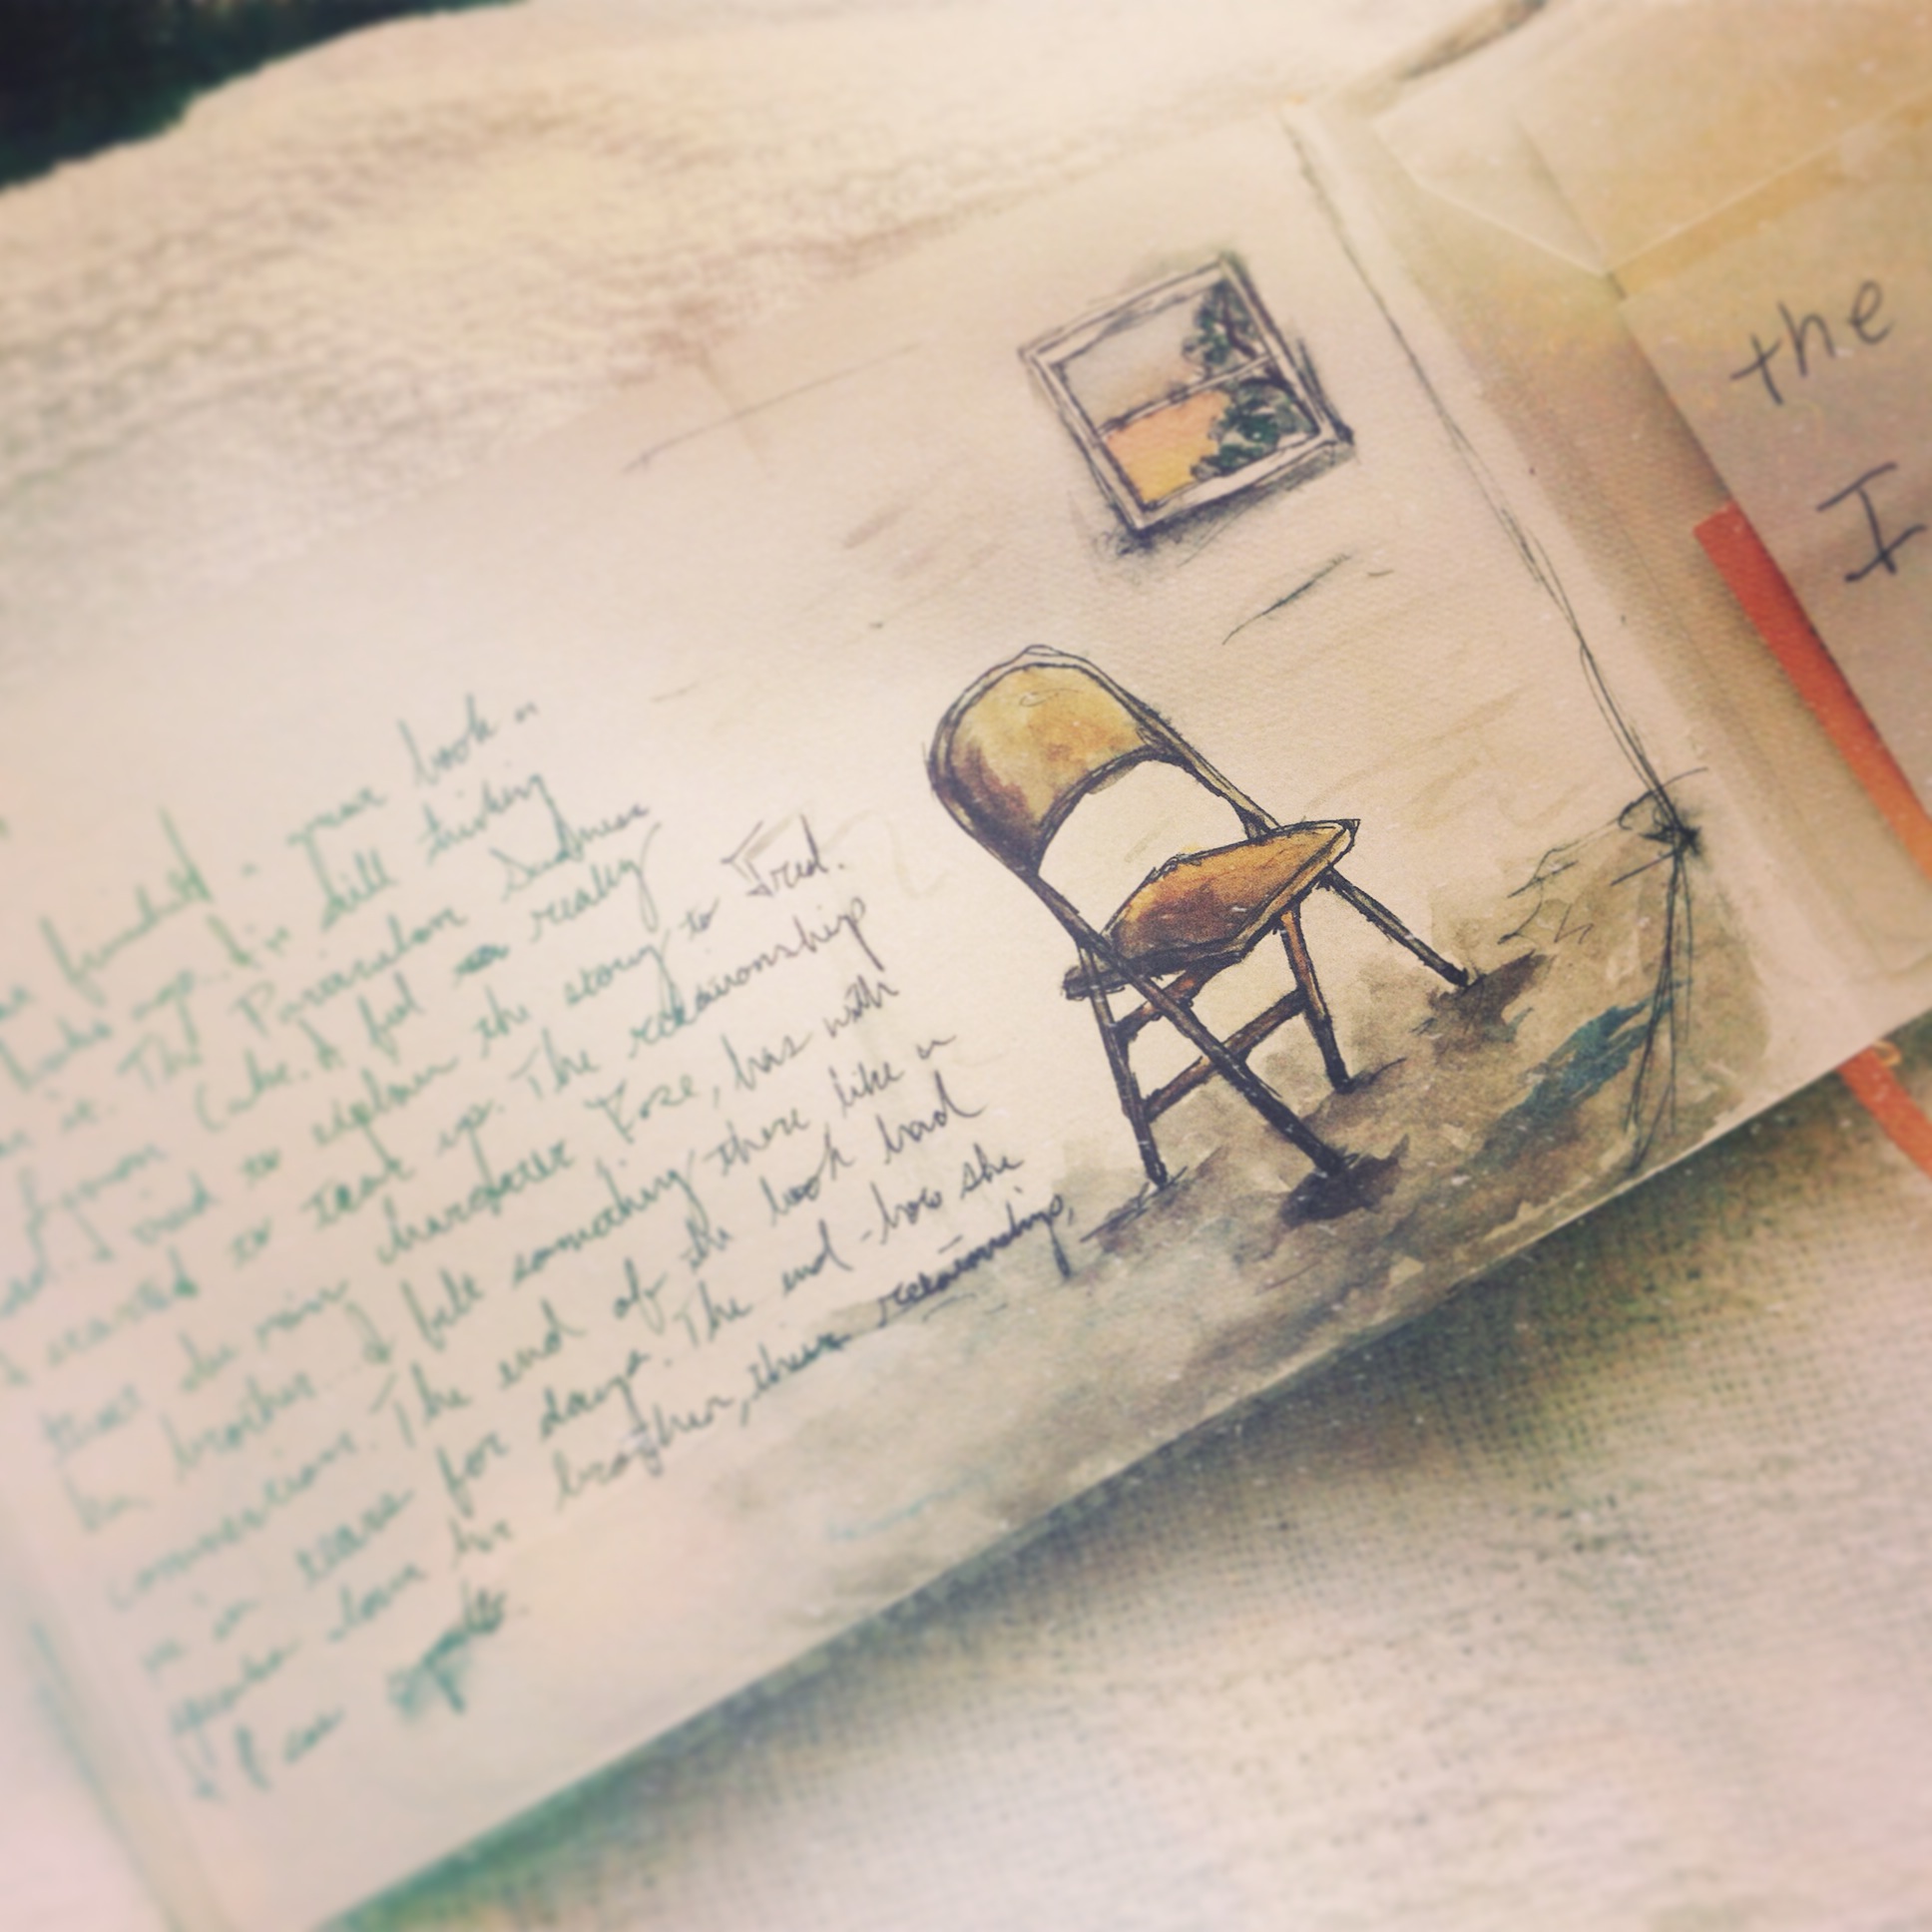 finished - your book a
ago. I'm still thinking
it. The Particular Sadness
Lemon Cake. I feel so really
tried to explain the story to Fred.
I started to tear up. The relationship
that the main character Rose, has with
her brother... I felt something there, like a
connection. The end of the book had
me in tears for days. The end - how she
spoke about her brother, their relationship,
I can
the
I